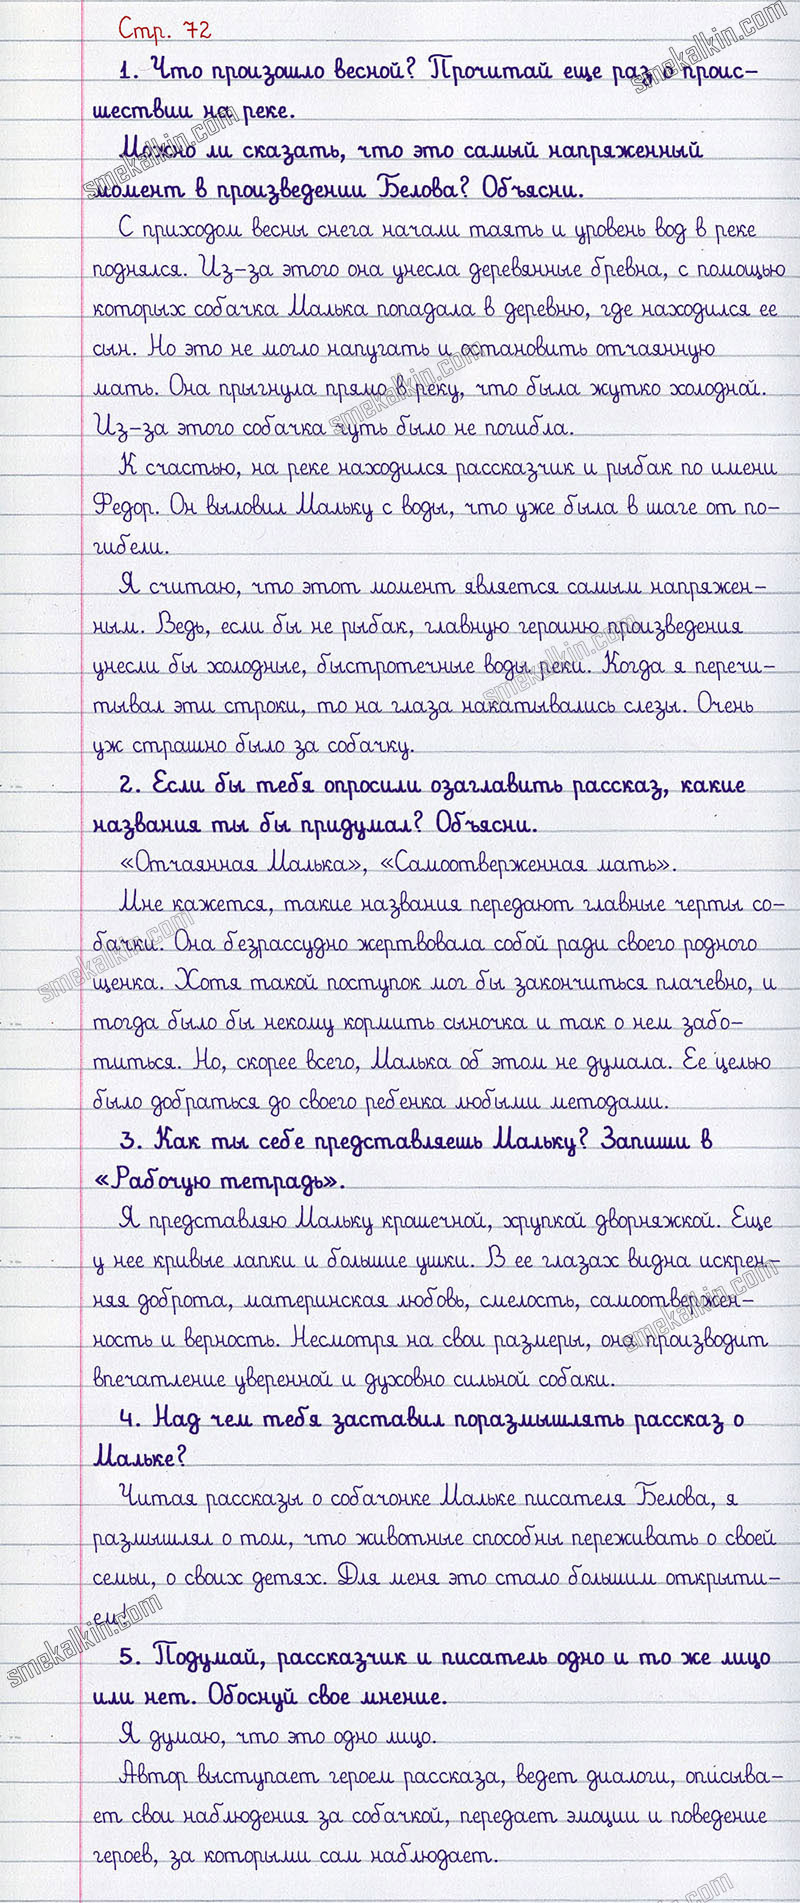 Стр. 72
1. Что произошло весной? Прочитай еще раз о проис-
шествии на реке.
Можно ли сказать, что это самый напряженный
момент в произведении Белова? Объясни.
С приходом весны снега начали таять и уровень вод в реке
поднялся. Из-за этого она унесла деревянные бревна, с помощью
которых собачка Малька попадала в деревню, где находился ее
сын. Но это не могло напугать и остановить отчаянную
мать. Она прыгнула прямо в реку, что была жутко холодной.
Из-за этого собачка чуть было не погибла.
К счастью, на реке находился рассказчик и рыбак по имени
Федор. Он выловил Мальку с воды, что уже была в шаге от по-
гибели.
Я считаю, что этот момент является самым напряжен-
ным. Ведь, если бы не рыбак, главную героиню произведения
унесли бы холодные, быстротечные воды реки. Когда я перечи-
тывал эти строки, то на глаза накатывались слезы. Очень
уж страшно было за собачку.
2. Если бы тебя опросили озаглавить рассказ, какие
названия ты бы придумал? Объясни.
«Отчаянная Малька», «Самоотверженная мать».
Мне кажется, такие названия передают главные черты со-
бачки. Она безрассудно жертвовала собой ради своего родного
щенка. Хотя такой поступок мог бы закончиться плачевно, и
тогда было бы некому кормить сыночка и так о нем забо-
титься. Но, скорее всего, Малька об этом не думала. Ее целью
было добраться до своего ребенка любыми методами.
3. Как ты себе представляешь Мальку? Запиши в
«Рабочую тетрадь».
Я представляю Мальку крошечной, хрупкой дворняжкой. Еще
у нее кривые лапки и большие ушки. В ее глазах видна искрен-
няя доброта, материнская любовь, смелость, самоотвержен-
ность и верность. Несмотря на свои размеры, она производит
впечатление уверенной и духовно сильной собаки.
4. Над чем тебя заставил поразмышлять рассказ о
Мальке?
Читая рассказы о собачонке Мальке писателя Белова, я
размышлял о том, что животные способны переживать о своей
семьи, о своих детях. Для меня это стало большим открыти-
ем!
5. Подумай, рассказчик и писатель одно и то же лицо
или нет. Обоснуй свое мнение.
Я думаю, что это одно лицо.
Автор выступает героем рассказа, ведет диалоги, описыва-
ет свои наблюдения за собачкой, передает эмоции и поведение
героев, за которыми сам наблюдает.
smekalkin.com
smekalkin.com
smekalkin.com
smekalkin.com
smekalkin.com
smekalkin.com
smekalkin.com
smekalkin.com